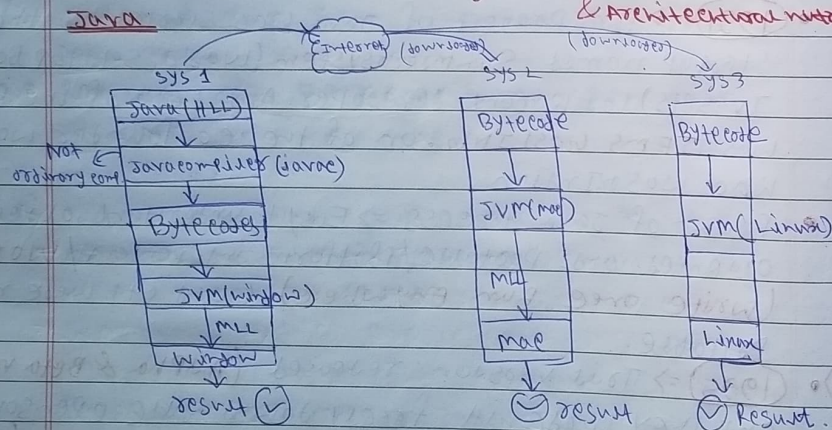 Java
& Architectural
Internet
(download)
(download)
sys 1
sys 2
sys 3
Java (HLL)
Not
ordinary com
Javacompiler (javac)
Bytecodes
JVM(window)
MLL
window
result
Bytecode
JVM(mac)
MLL
mac
result
Bytecode
JVM(Linux)
Linux
Result.